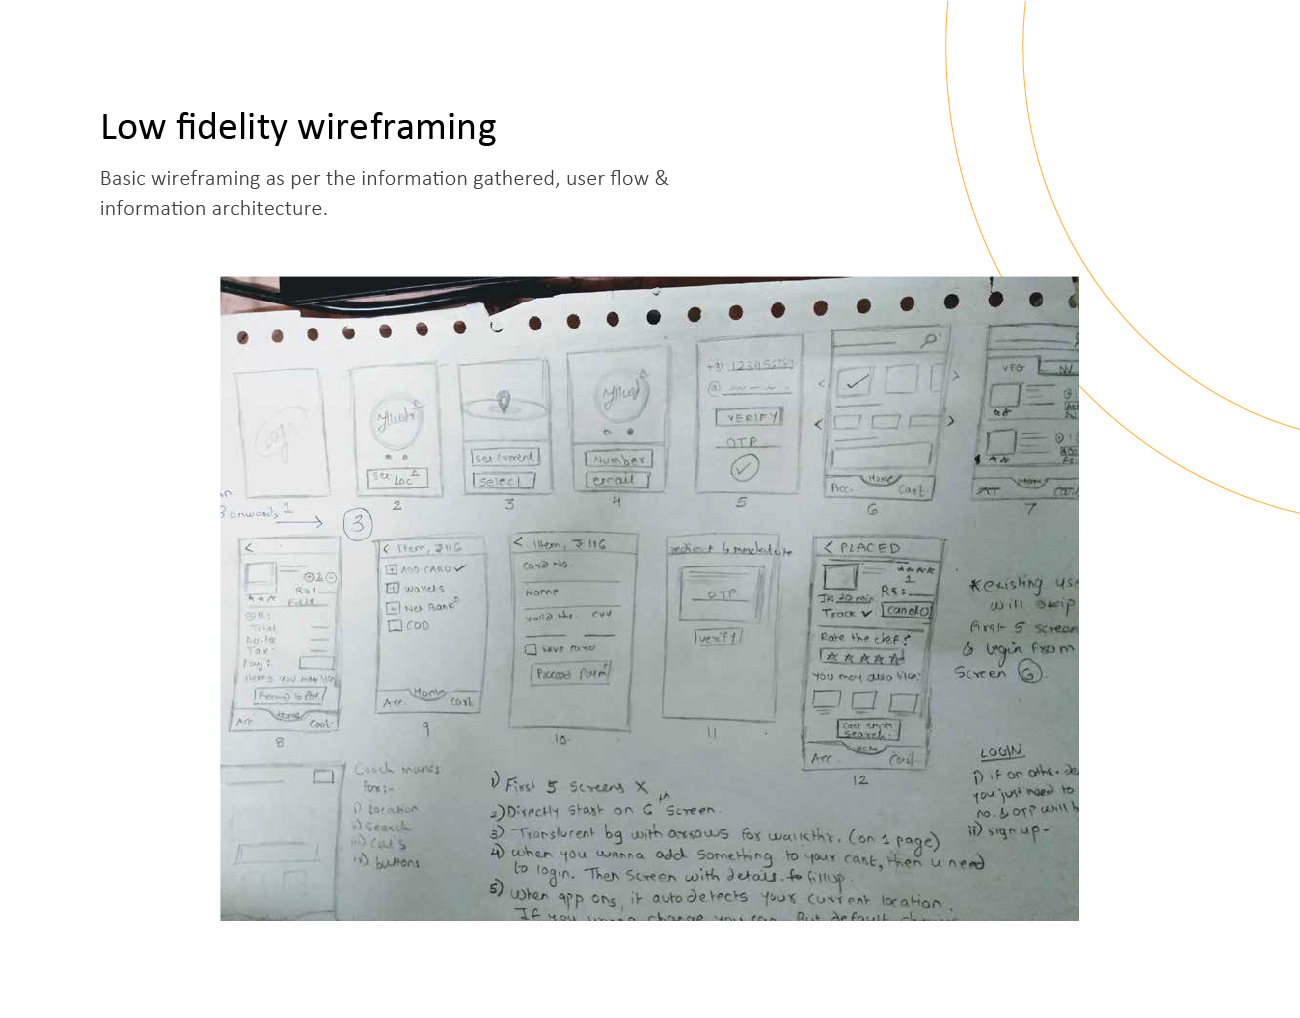 Low fidelity wireframing
Basic wireframing as per the information gathered, user flow &
information architecture.
Logo
Illustn
Set Locn
2
Set Current
Select
3
Illustn
Number
email
4
+91 123456789
@
VERIFY
OTP
5
Acc. Home Cart.
6
VEG NV
Home
7
3 onwards, 1
3
<
2
Total
Tax:
Pay:
Items you may like
Acc. Home Cart.
8
< Item, ₹116
ADD CARD
Wallets
Net Bankg
COD
Acc. Home Cart
9
< Item, ₹116
Card No.
Name
Valid thr. CVV
Save card
Proceed
10.
redirect to
OTP
verify
11
< PLACED
1
In 20 min Rs:
Track Cancel
Rate the chef?
You may also like:
Search.
Acc. Cart.
12
*existing
will skip
first 5 screen
& begin from
Screen 6.
LOGIN
i) if on oth.
you just need to
no. & OTP will
ii) sign up -
Coach marks
for:-
i) Location
ii) Search
iii) Cat's
iv) buttons
1) First 5 Screens X
2) Directly start on 6th Screen.
3) Translucent bg with arrows for walkthr. (on 1 page)
4) when you wanna add something to your cart, then u need
to login. Then Screen with details. to fillup.
5) when app ons, it auto detects your current location.
If you wanna change you can. But default